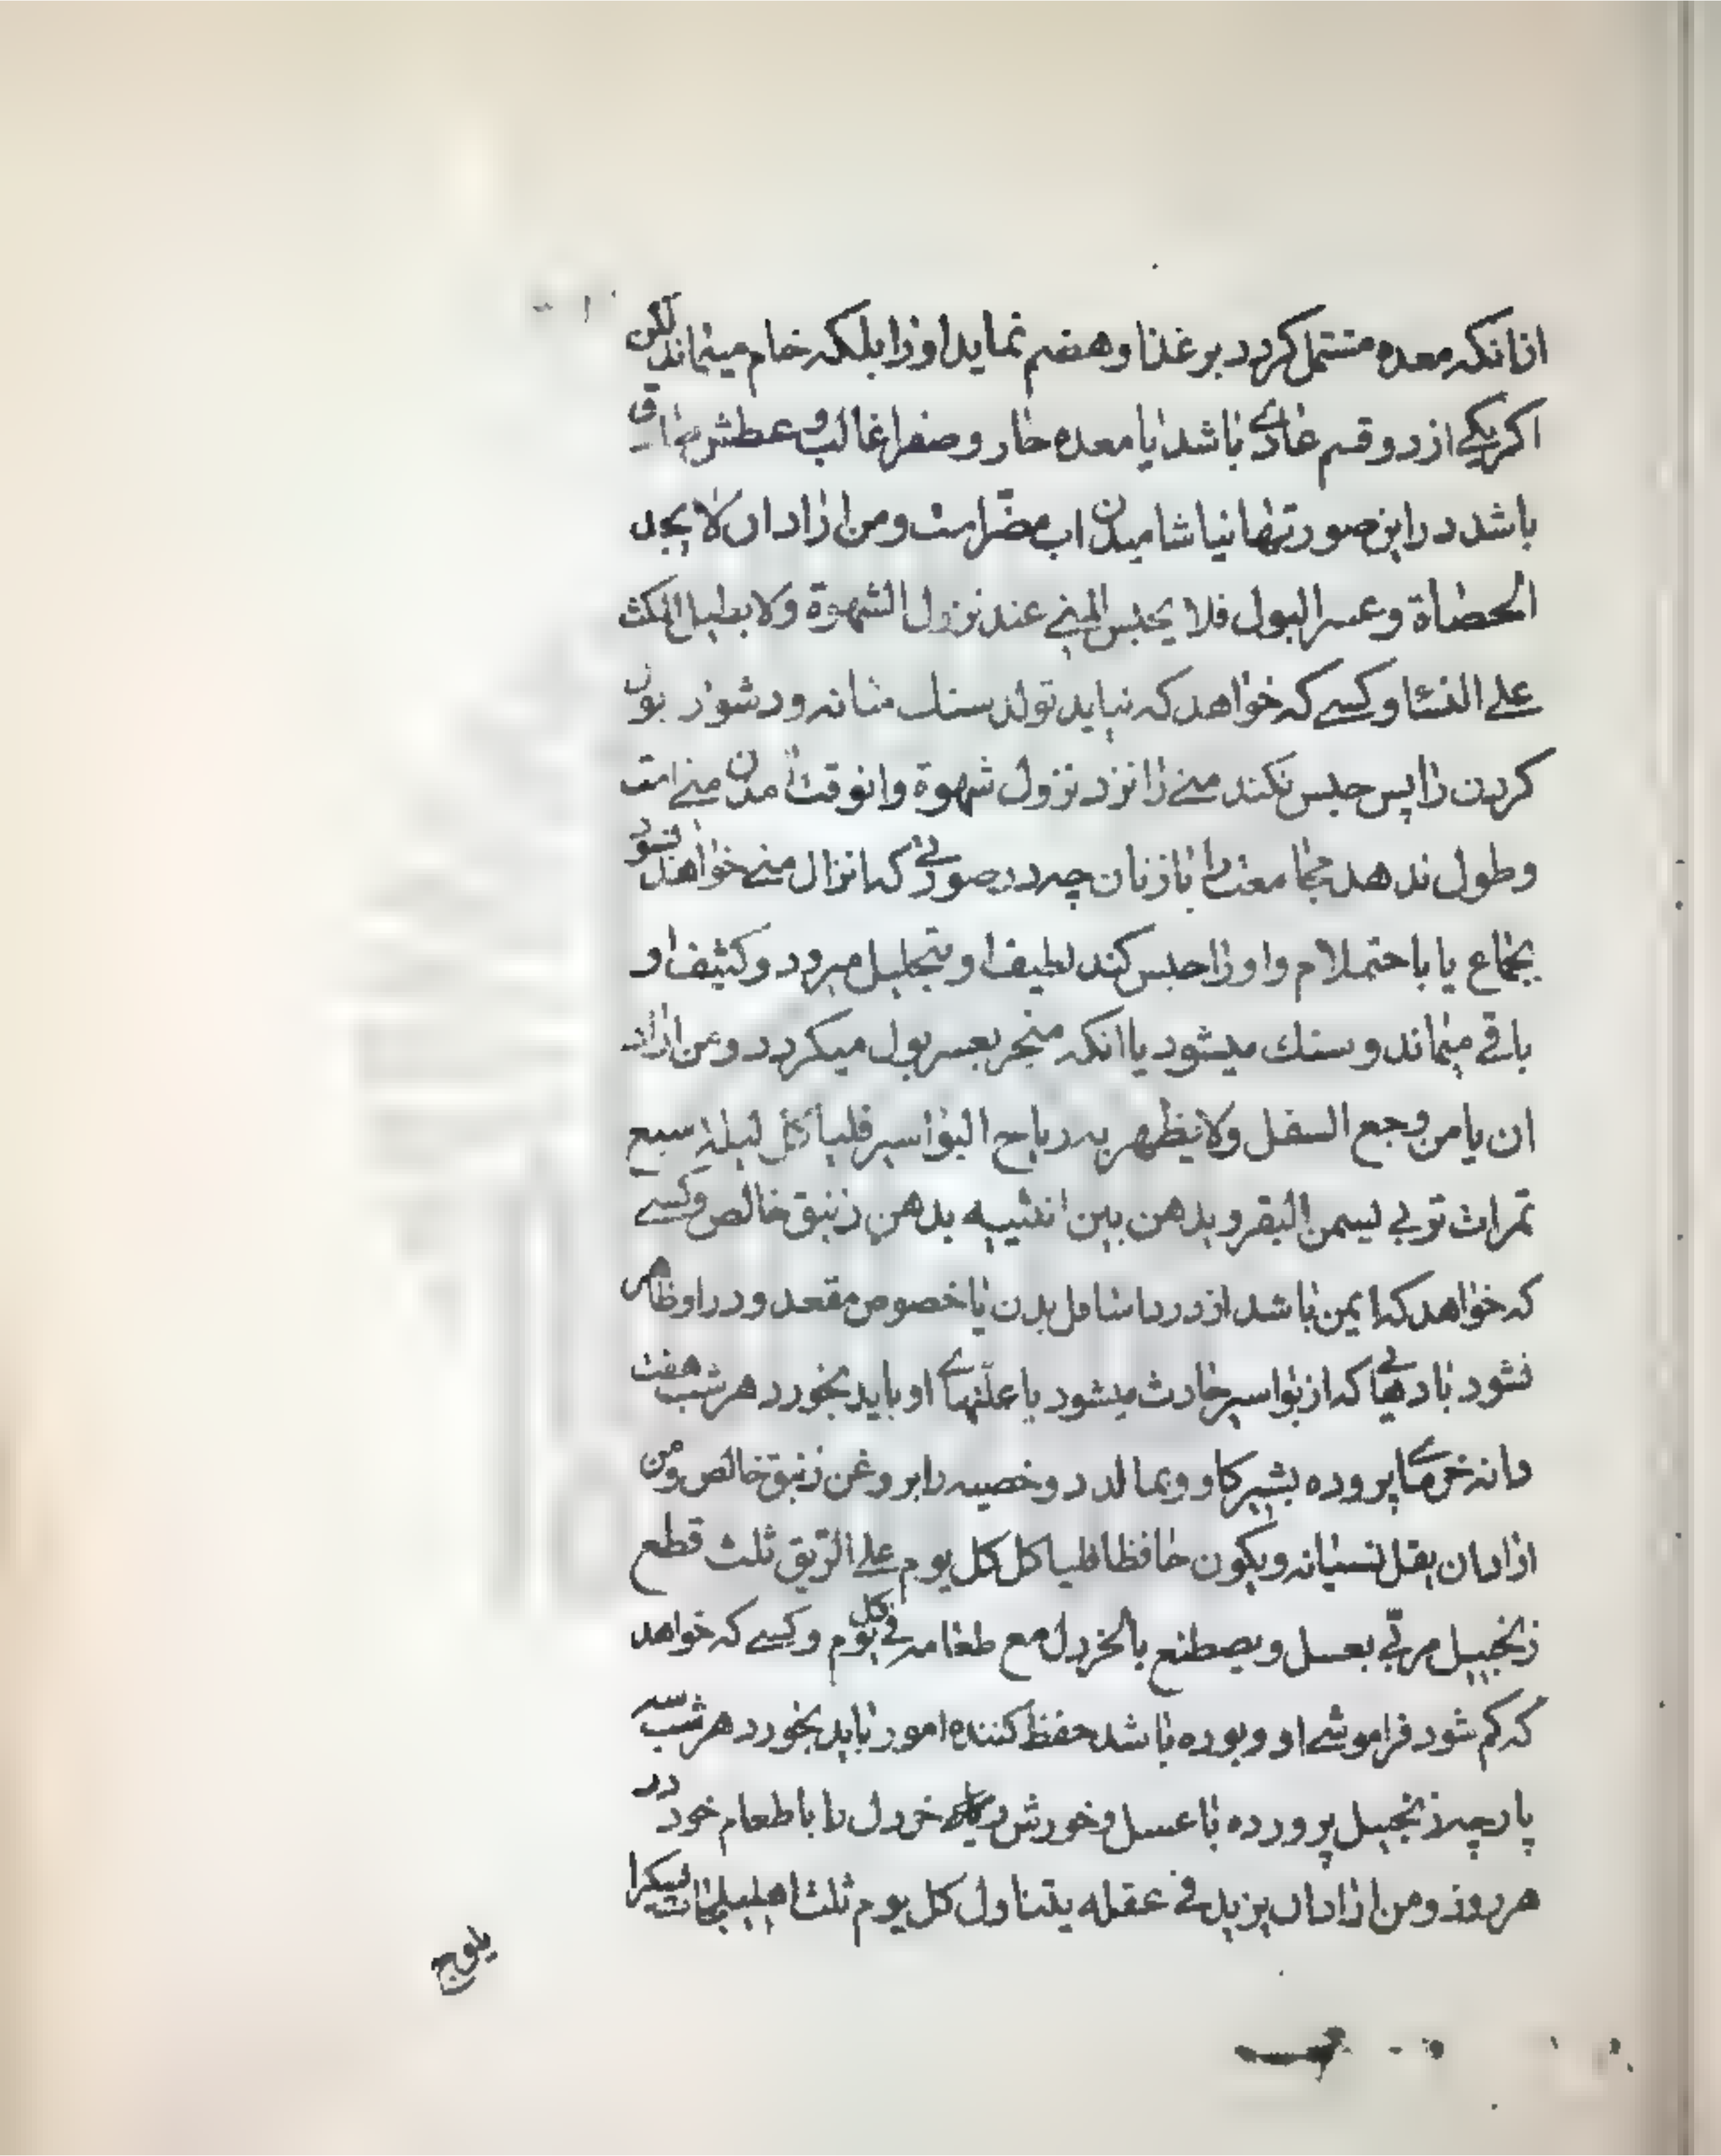 ازانکه معده مشتمل کردد بر غذا و هضم نماید او را بلکه خام میماند لکن
اکر یکی از دو قسم عادی باشد یا معده حار و صفرا غالب و عطش
باشد در این صورتها نیاشامیدن اب مضر است و من اراد ان لا یجد
الحصاة و عسر البول فلا یحبس المنی عند نزول الشهوة ولا یطیل المکث
علی النسا و کسی که خواهد که نیابد تولد سنک مثانه و دشوار بول
کردن را پس حبس نکند منی را نزد نزول شهوة و انوقت امدن منی است
و طول ندهد مجامعت را با زنان چه در صورتی که انزال منی خواهد شود
بجماع یا باحتلام و او را حبس کند لطیف او بتحلیل میرود و کثیف او
باقی میماند و سنک میشود یا انکه منجر بعسر بول میکردد و من اراد
ان یامن وجع السفل ولا یظهر به ریاح البواسیر فلیاکل کل لیلة سبع
تمرات بسمن البقر و یدهن بین انثییه بدهن زنبق خالص و کسی
که خواهد که ایمن باشد از درد اسافل بدن یا خصوص مقعد و در او ظاهر
نشود بادهائی که از بواسیر حادث میشود یا علتهای او باید بخورد هر شب هفت
دانه خرمای پروده بشیر کاو و بمالد دو خصیه را بروغن زنبق خالص و من
اراد ان یقل نسیانه و یکون حافظا فلیاکل کل یوم علی الریق ثلث قطع
زنجبیل مربی بعسل و یصطنع بالخردل مع طعامه فی کل یوم و کسی که خواهد
که کم شود فراموشی او و بوده باشد حفظ کننده امور باید بخورد هر شب سه
پارچه زنجبیل پرورده با عسل و خورش خردل را با طعام خود در
هر روز و من اراد ان یزید فی عقله یتناول کل یوم ثلث اهلیلجات بسکر